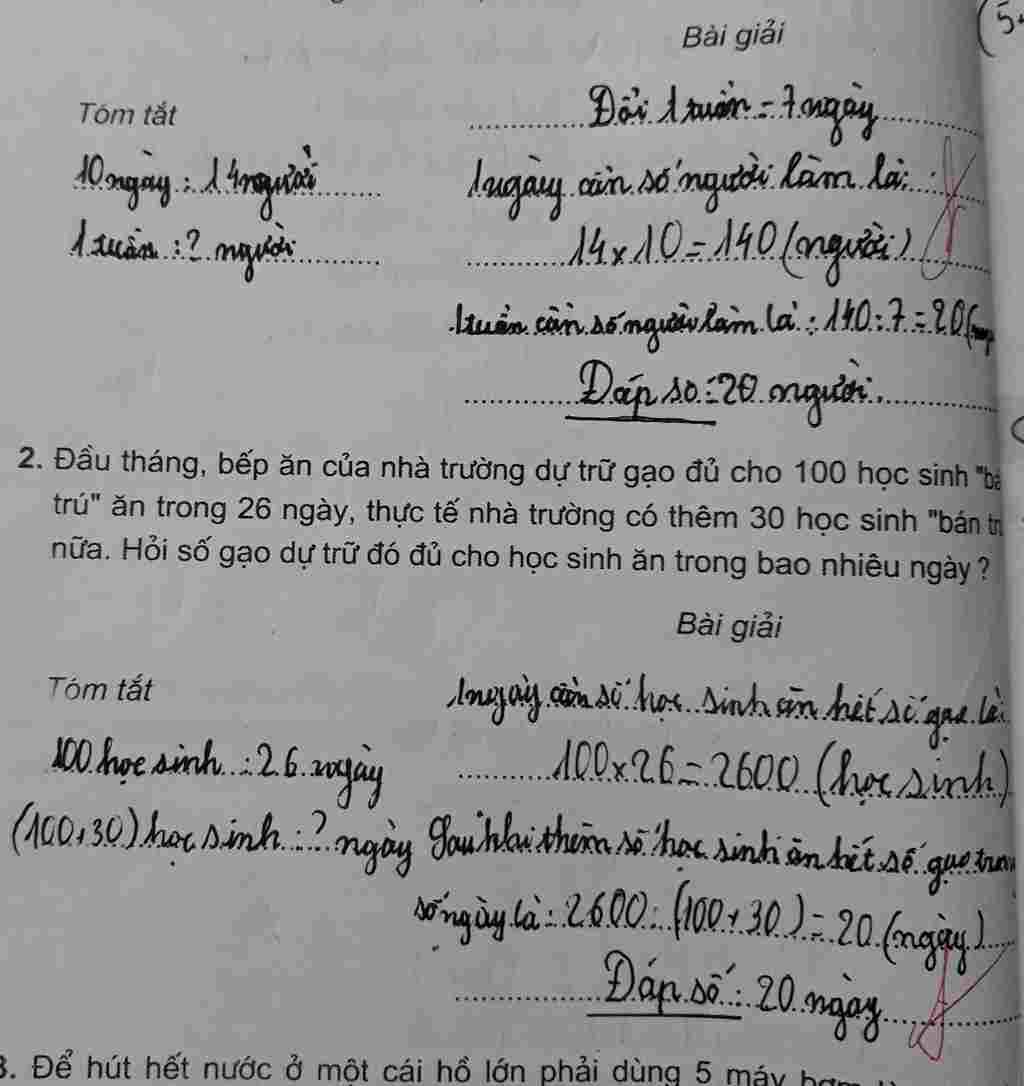 (5.
Bài giải
Tóm tắt
Đổi 1 tuần = 7 ngày
10 ngày : 14 người
1 ngày cần số người làm là:
1 tuần : ? người
14 x 10 = 140 (người)
1 tuần cần số người làm là : 140 : 7 = 20 (
Đáp số : 20 người
2. Đầu tháng, bếp ăn của nhà trường dự trữ gạo đủ cho 100 học sinh "bá
trú" ăn trong 26 ngày, thực tế nhà trường có thêm 30 học sinh "bán tr
nữa. Hỏi số gạo dự trữ đó đủ cho học sinh ăn trong bao nhiêu ngày ?
Bài giải
Tóm tắt
1 ngày cần số học sinh ăn hết số gạo là
100 học sinh : 26 ngày
100 x 26 = 2600 (học sinh)
(100+30) học sinh : ? ngày
Sau khi thêm số học sinh ăn hết số gạo tron
số ngày là : 2600 : (100 + 30) = 20 (ngày)
Đáp số : 20 ngày
3. Để hút hết nước ở một cái hồ lớn phải dùng 5 máy bơm